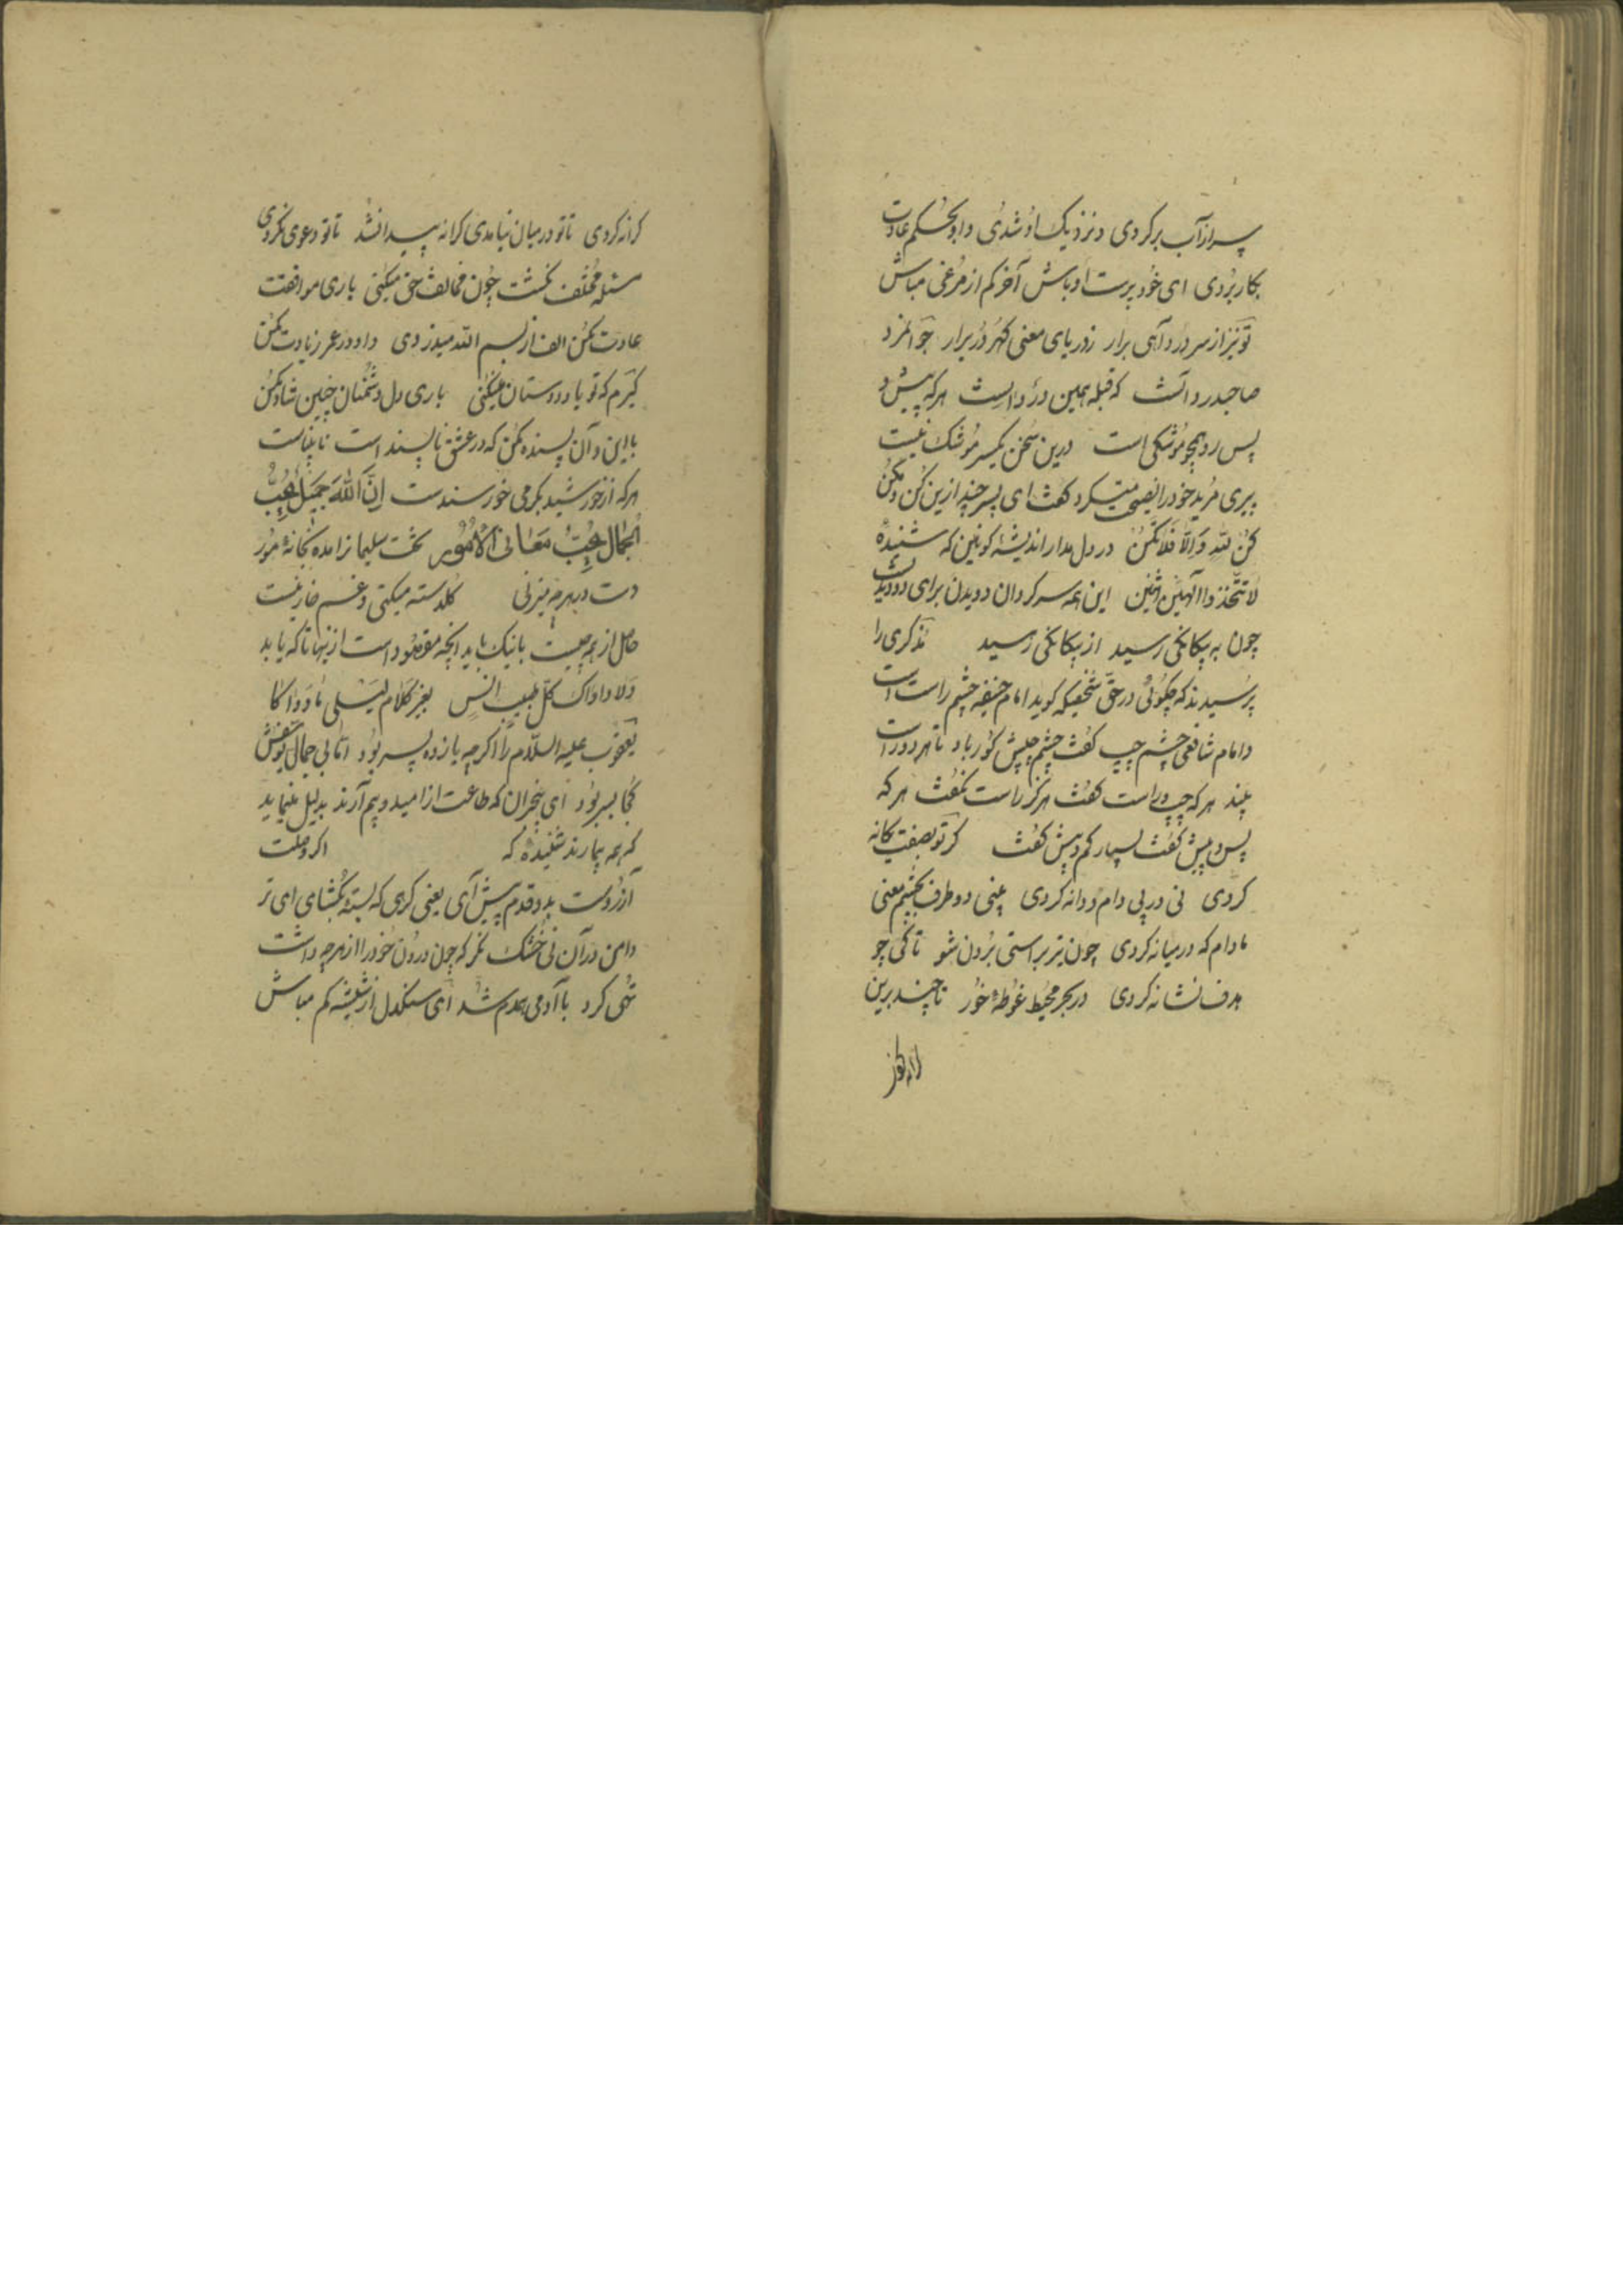 سر از آب بر کردی و نزدیک او شدی و او بحکم عادت
بکار بردی ای خود پرست اوباش آخر کم از مرغی مباش
تو نیز از سر درد آهی برار ز دریای معنی گهر در برار جوانمرد
صاحبدرد آنست که قبله همین درد داست هر که پیش و
پس رود همچو موشکی است درین سخن یکسر مو شک نیست
پیری مرید خود را نصیحت میکرد گفت ای پسر چند ازین کن و مکن
کن لله و الا فلا تکن در دل مدار اندیشه کونین که شنیدهٔ
لا تتخذوا الهین اثنین این همه سرگردان دویدن برای دو دیدنست
چون به یکانکی رسید از یکانکی رسید مذکری را
پرسیدند که چگوئی در حق شخصیکه گوید امام حنیفه چشم راست است
و امام شافعی چشم چپ گفت چشم چپش کور باد تا هر دو راست
بیند هر که چپ و راست گفت هرگز راست نگفت هر که
پس و پیش گفت بسیار کم و بیش گفت گر تو بصفت یکانه
کردی نی در پی دام و دانه کردی بینی دو طرف بچشم معنی
مادام که در میانه کردی چون تیر براستی برون شو تا کی چو
هدف نشانه کردی در بحر محیط غوطه خور تا چند برین
کرانه کردی تا تو در میان نیامدی کرانه پیدا نشد تا تو دعوی نکردی
مسئله مختلف نگشت چون مخالفت حق میکنی باری موافقت
عادت مکن الف از بسم الله میدزدی و او در عمر زیادت مکن
گیرم که تو یاد دوستان میکنی باری دل دشمنان چنین شاد مکن
با این و آن بسنده مکن که در عشق ناپسند است نابیناست
هر که از خورشید بگرمی خورسندست ان الله جمیل یحب
الجمال یحب معالی الامور تخت سلیمانرا مده بخانهٔ مور
دست در هر چه میزنی گلدسته میکنی و غم خار نیست
حاصل از همه چیست بانیک باید آنچه مقصود است از ینها تا که یابد
ولا داواک کل طبیب انس بغیر کلام لیلی ما دواکا
یعقوب علیه السلام را اگر چه یازده پسر بود اما بی جمال یوسفش
کجا بسر بود ای بیخبران که طاعت از امید و بیم آرند بدلیل بنمایید
که همه بیمارند شنیدهٔ که اگر وصلت
آرزوست بدو قدم پیش آی یعنی گرهی که بستهٔ بگشای ای تر
دامن در آن نی خشک نگر که چون درون خود را از هر چه داشت
تهی کرد با آدمی همدم شد ای سنگدل از شیشه کم مباش